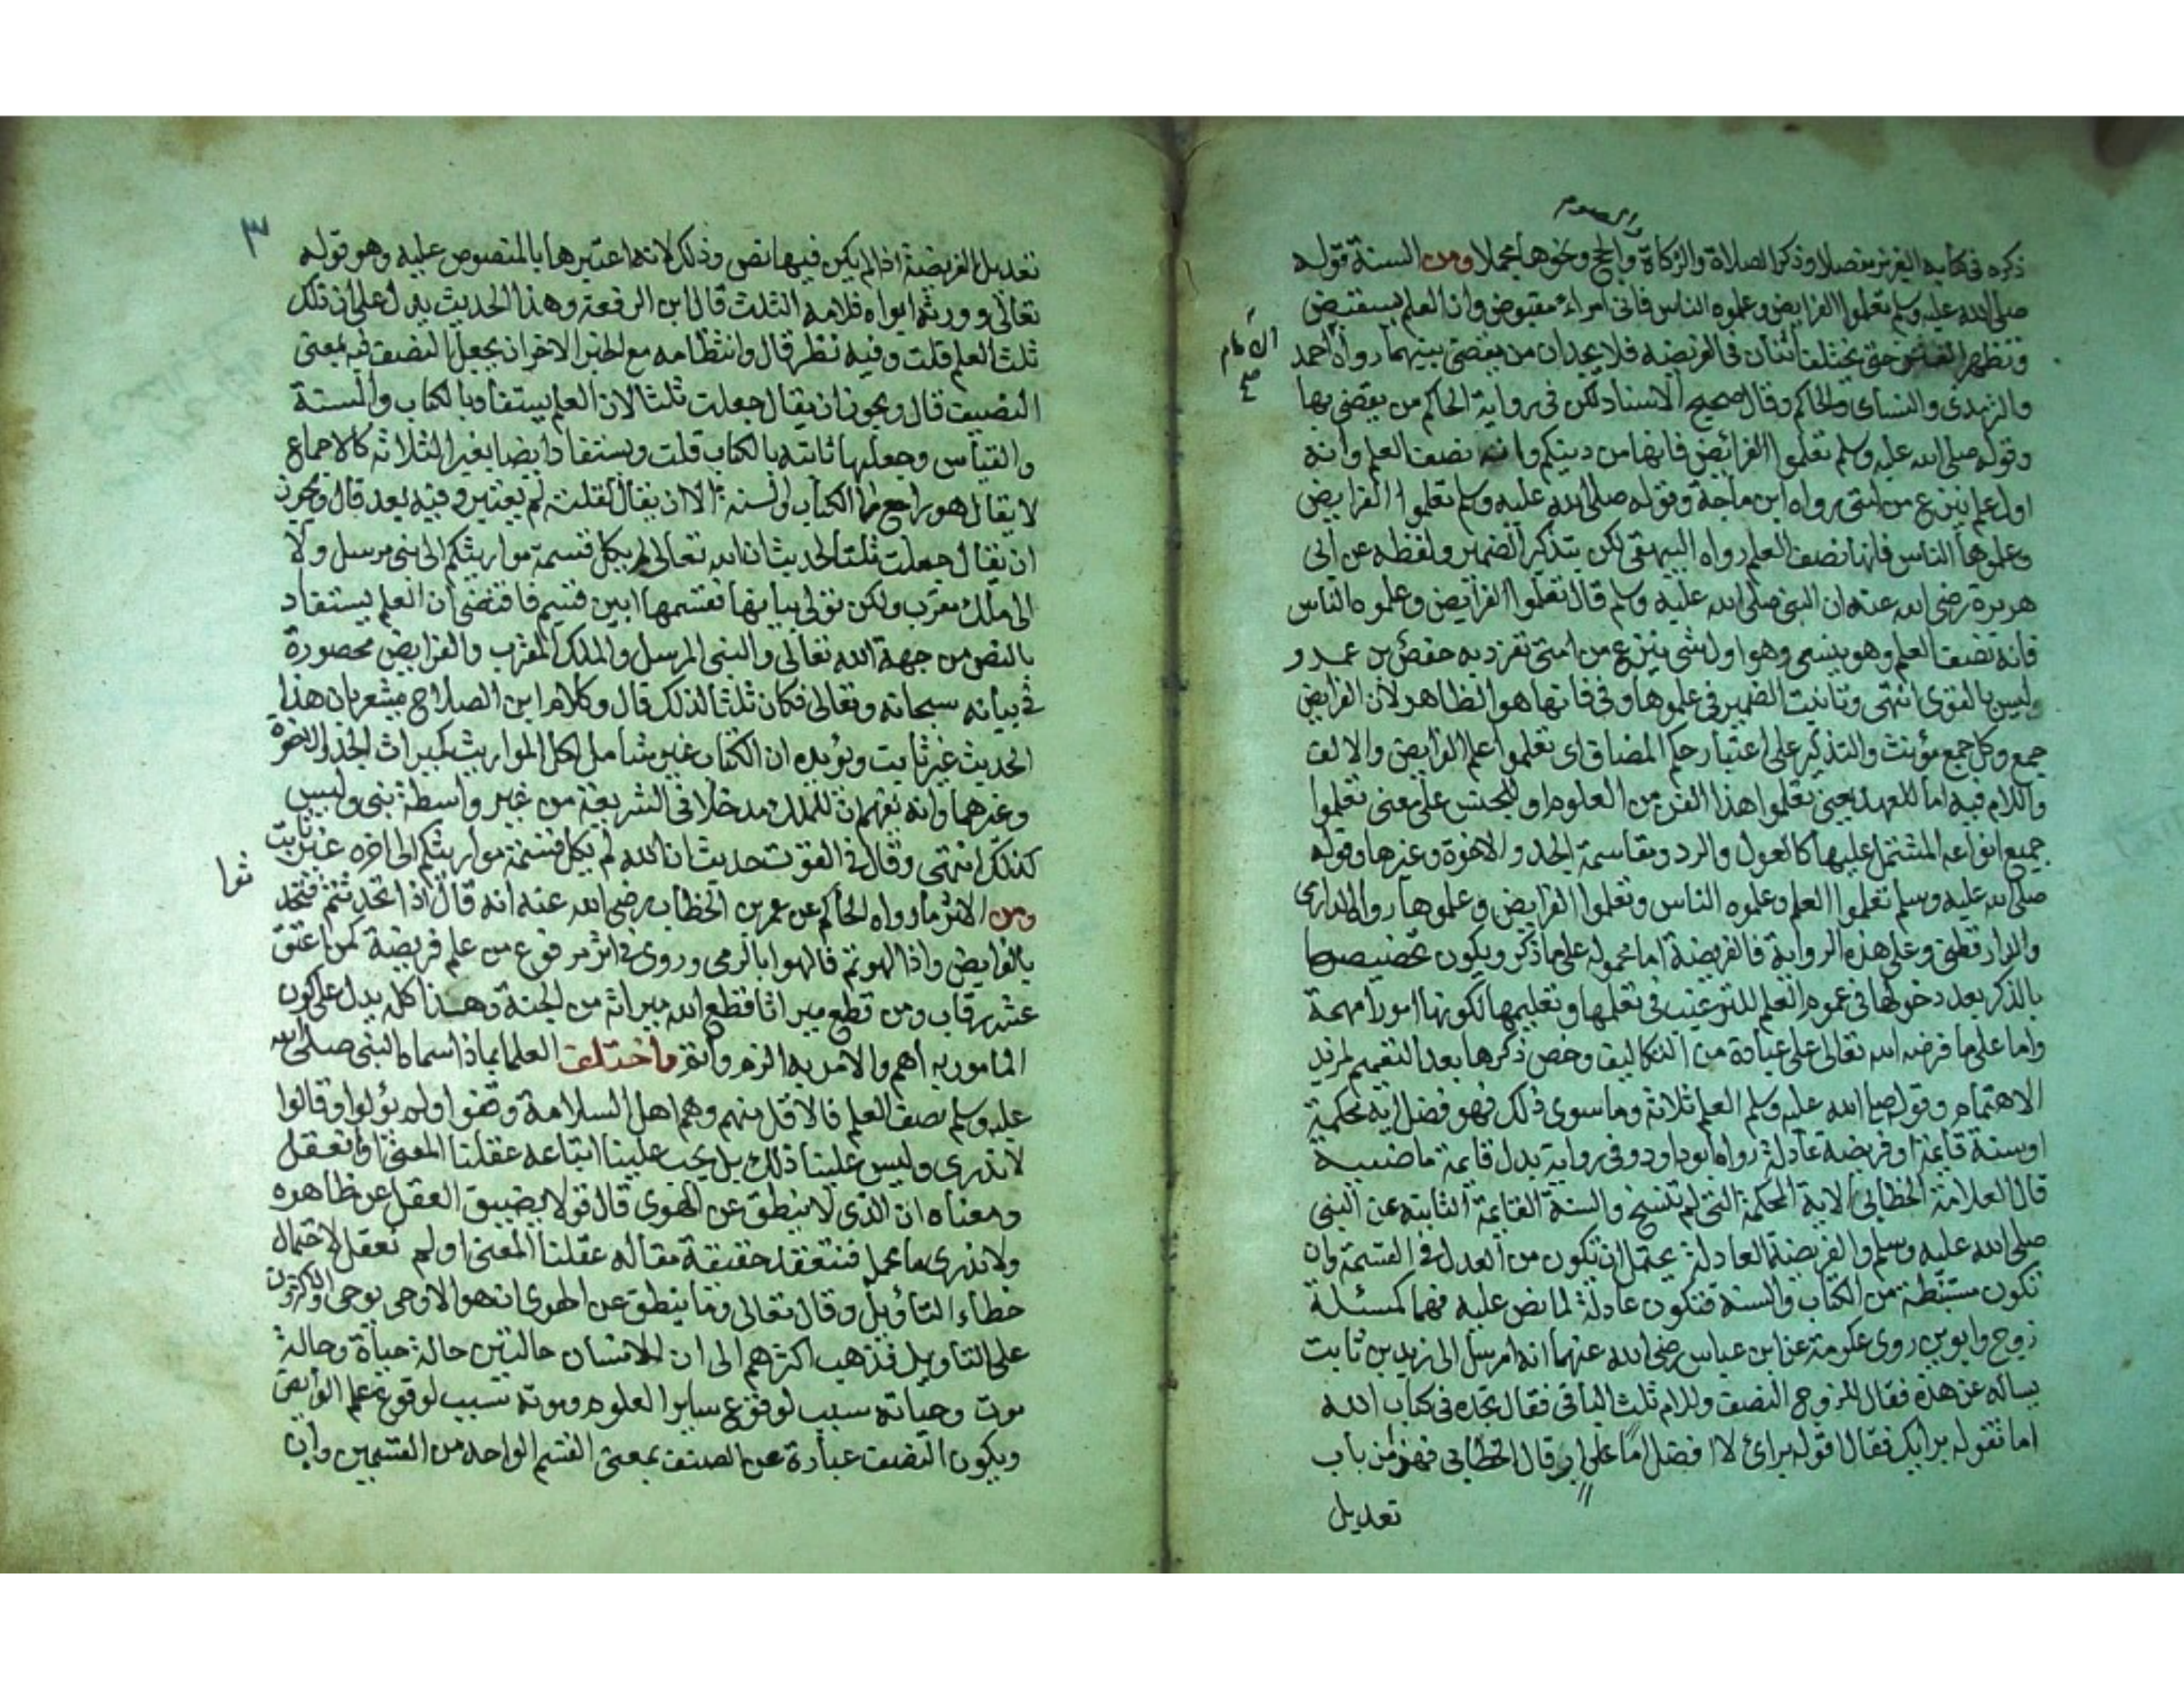 والصوم
ذكره في كتابه العزيز مفصلا وذكر الصلاة والزكاة والحج ونحوها مجملا ومن السنة قوله
صلى الله عليه وسلم تعلموا الفرايض وعلموه الناس فاني امراء مقبوض وان العلم سيقبض
وتظهر الفتن حتى يختلف اثنان في الفريضه فلا يجدان من يقضي بينهما رواه احمد
الامام
صح
والترمذي والنساي والحاكم وقال صحيح الاسناد لكن في رواية الحاكم من يقضي بها
وقوله صلى الله عليه وسلم تعلموا الفرائض فانها من دينكم وانه نصف العلم وانه
اول علم ينزع من امتي رواه ابن ماجة وقوله صلى الله عليه وسلم تعلموا الفرايض
وعلموها الناس فانها نصف العلم رواه البيهقي لكن بتذكير الضمير ولفظه عن ابي
هريرة رضي الله عنه ان النبي صلى الله عليه وسلم قال تعلموا الفرايض وعلموه الناس
فانه نصف العلم وهو ينسى وهو اول شي ينزع من امتي تفرد به حفص بن عمر و
وليس بالقوى انتهى وتانيث الضمير في علموها وفي فانها هو الظاهر لان الفرايض
جمع وكل جمع مؤنث والتذكير على اعتبار حكم المضاف اى تعلموا علم الفرايض والالف
واللام فيه اما للعهد يعني تعلموا هذا الفن من العلوم او للجنس على معنى تعلموا
جميع انواعه المشتمل عليها كالعول والرد ومقاسمة الجد والاخوة وغيرها وقوله
صلى الله عليه وسلم تعلموا العلم وعلموه الناس وتعلموا الفرايض وعلموها رواه الدارمى
والدارقطني وعلى هذه الرواية فالفريضة اما محموله على ما ذكر ويكون تخصيصها
بالذكر بعد دخولها في عموم العلم للترغيب في تعلمها وتعليمها لكونها امورا مهمة
واما على ما فرضه الله تعالى على عباده من التكاليف وخص ذكرها بعد التعميم لمزيد
الاهتمام وقوله صلى الله عليه وسلم العلم ثلاثة وما سوى ذلك فهو فضل اية محكمة
او سنة قايمة او فريضة عادلة رواه ابو داود وفي رواية بدل قايمة ماضية
قال العلامة الخطابي الاية المحكمة التي لم تنسخ والسنة القايمة الثابته عن النبي
صلى الله عليه وسلم والفريضة العادلة يحتمل ان تكون من العدل في القسمة وان
تكون مستنبطة من الكتاب والسنة فتكون عادلة لما نص عليه فيهما كمسئلة
زوج وابوين روى عكرمة عن ابن عباس رضي الله عنهما انه ارسل الى زيد بن ثابت
يساله عن هذه فقال للزوج النصف وللام ثلث الباقي فقال تجده في كتاب الله
اما تقوله برايك فقال اقوله برائ لا افضل اما على اب قال الخطابي فهذه من باب
تعديل
٣
تعديل الفريضة اذا لم يكن فيها نص وذلك لانه اعتبرها بالمنصوص عليه وهو قوله
تعالى وورثه ابواه فلامه الثلث قال ابن الرفعة وهذا الحديث يدل على ان ذلك
ثلث العلم قلت وفيه نظر قال وانتظامه مع الخبر الاخر ان يجعل النصف فيه بمعنى
النصيب قال ويجوز ان يقال جعلت ثلثا لان العلم يستفاد بالكتاب والسنة
والقياس وجعلها ثابته بالكتاب قلت ويستفاد ايضا بغير الثلاثه كالاجماع
لا يقال هو راجع الى الكتاب والسنة الا ان يقال لقلته لم يعتبر وفيه بعد قال ويجوز
ان يقال جعلت ثلثا لحديث ان الله تعالى لم يكل قسمة مواريثكم الى نبي مرسل ولا
الى ملك مقرب ولكن تولى بيانها فقسمها ابين قسيم فاقتضى ان العلم يستفاد
بالنص من جهة الله تعالى والنبي المرسل والملك المقرب والفرايض محصورة
في بيانه سبحانه وتعالى فكان ثلثا لذلك قال وكلام ابن الصلاح مشعر بان هذا
الحديث غير ثابت ويؤيده ان الكتاب غير شامل لكل المواريث كميراث الجد والاخوة
وغيرهما وانه يفهم ان للملك مدخلا في الشريعة من غير واسطة نبي وليس
كذلك انتهى وقال في القوت حديث ان الله لم يكل قسمة مواريثكم الى اخره غير ثابت
ومن الاثر ما رواه الحاكم عن عمر بن الخطاب رضي الله عنه انه قال اذا تحدثتم فتحد
ثوا
بالفرايض واذا لهوتم فالهوا بالرمى وروي في اثر مرفوع من علم فريضة كمن اعتق
عشر رقاب ومن قطع ميراثا قطع الله ميراثه من الجنة وهذا كله يدل على كون
المامور به اهم والامر به الزم واتم ما اختلف العلما بماذا سماه النبي صلى الله
عليه وسلم نصف العلم فالاقل منهم وهم اهل السلامة وقفوا ولم يؤولوا وقالوا
لا ندرى وليس علينا ذلك بل يجب علينا اتباعه عقلنا المعنى او لم نعقل
ومعناه ان الذى لا ينطق عن الهوى قال قولا يضيق العقل عن ظاهره
ولا ندرى ما محمله فنعتقد حقيقة مقاله عقلنا المعنى او لم نعقل لاحتمال
خطاء التاويل وقال تعالى وما ينطق عن الهوى ان هو الا وحي يوحى والاكثرون
على التاويل فذهب اكثرهم الى ان للانسان حالتين حالة حياة وحالة
موت وحياته سبب لوقوع ساير العلوم وموته سبب لوقوع علم الفرايض
ويكون النصف عبارة عن الصنف بمعنى القسم الواحد من القسمين وان